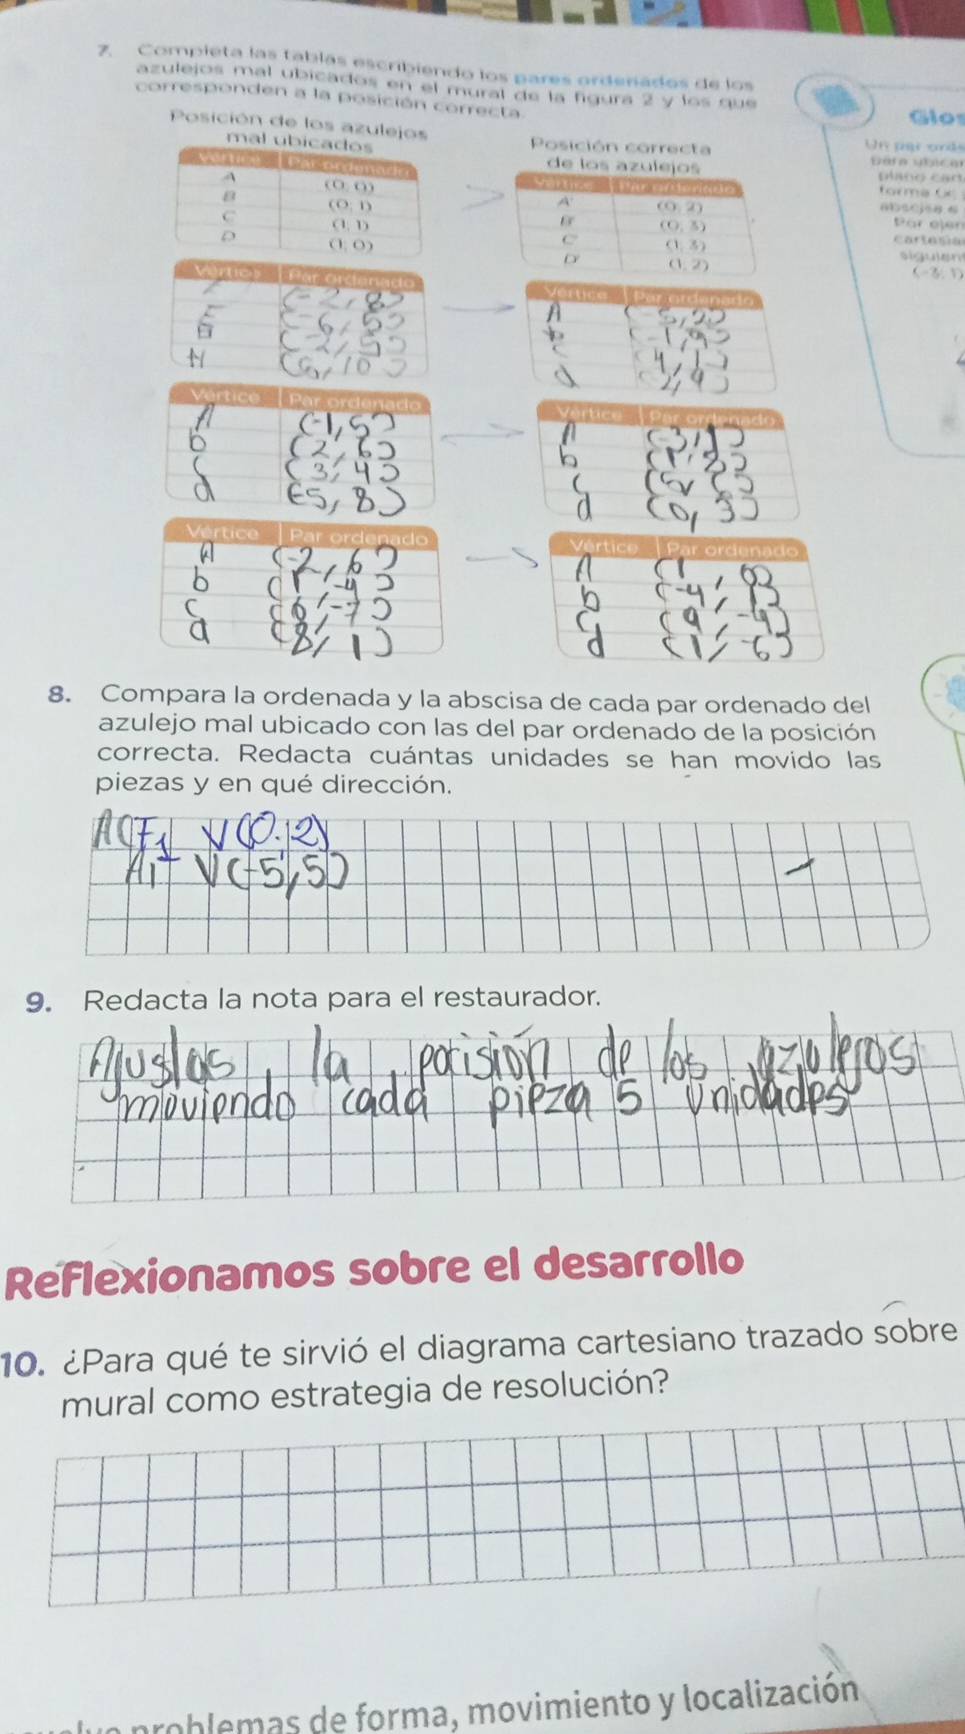 7. Completa las tablas escribiendo los pares ordenados de los
azulejos mal ubicados en el mural de la figura 2 y los que
corresponden a la posición correcta.
Posición de los azulejos
mal ubicados
Vértice Par ordenado
A (0; 0)
B (0; 1)
C (1; 1)
D (1; 0)
Posición correcta
de los azulejos
Vértice Par ordenado
A' (0; 2)
B' (0; 3)
C' (1; 3)
D' (1; 2)
Glos
Un par orde
para ubicar
plano cart
forma (x;
abscisa e
Por ejem
cartesia
siguient
(-3; 1)
Vértice Par ordenado
(-2, 8)
(-6, 5)
(-2, 5)
H
Vértice Par ordenado
A
d
Vértice Par ordenado
A (-1, 5)
b (2, 6)
(3, 4)
d (-5, 8)
Vértice Par ordenado
A
b
d (0, 3)
Vértice Par ordenado
A (-2, 6)
b (1, -4)
c (6, -7)
d (8, 1)
Vértice Par ordenado
A
b (-4, 1)
c (9, -4)
d (1, -6)
8. Compara la ordenada y la abscisa de cada par ordenado del
azulejo mal ubicado con las del par ordenado de la posición
correcta. Redacta cuántas unidades se han movido las
piezas y en qué dirección.
V(0.12)
V(-5,5)
9. Redacta la nota para el restaurador.
la posisión de los azuleros
moviendo cada pieza 5 unidades
Reflexionamos sobre el desarrollo
10. ¿Para qué te sirvió el diagrama cartesiano trazado sobre
mural como estrategia de resolución?
problemas de forma, movimiento y localización